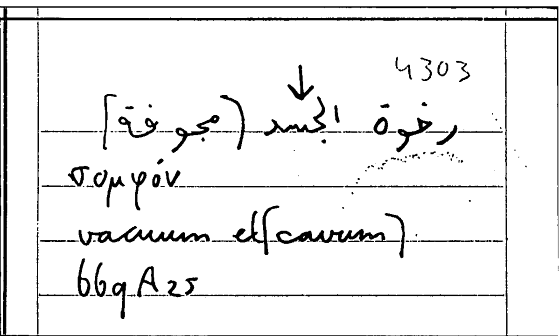 4303
رخوة الجسد (مجوفة)
σομφόν
vacuum et (cavum)
669 A 25